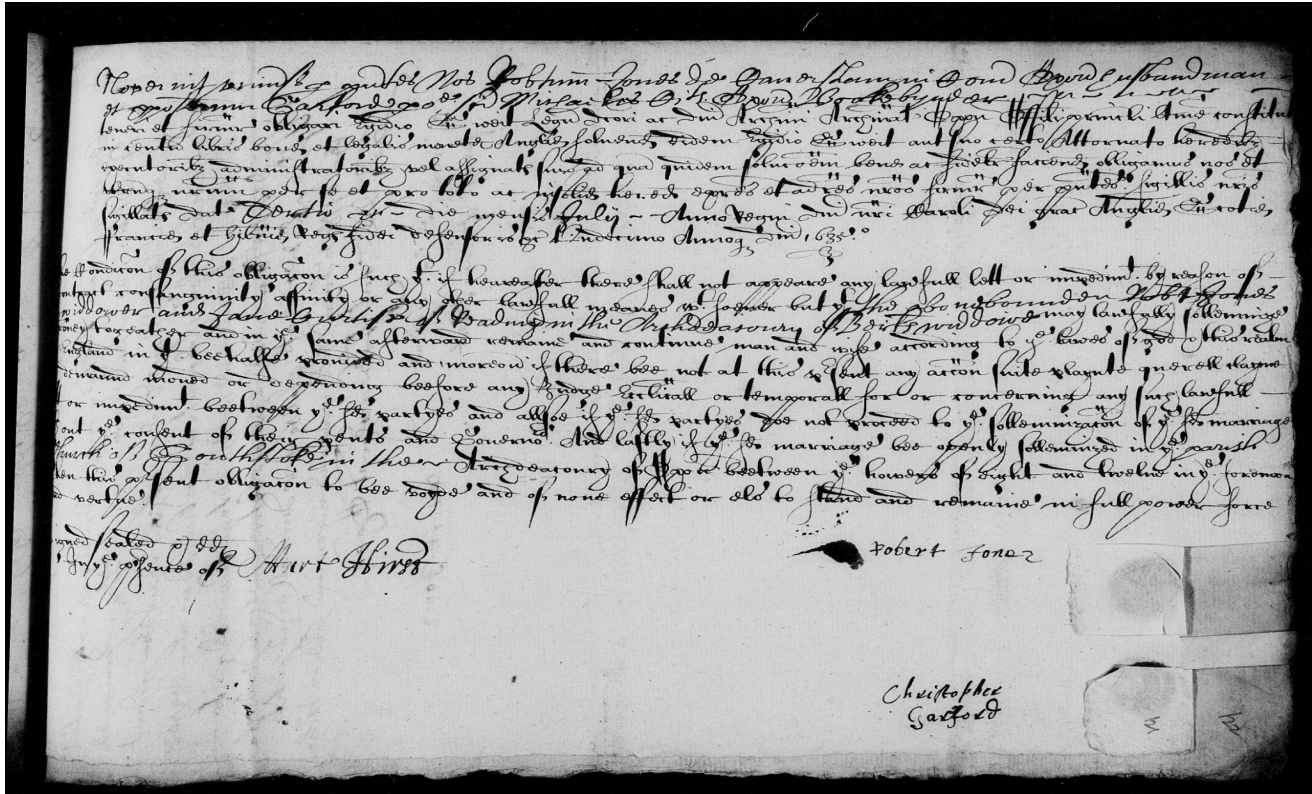 Noverint universi p pntes Nos Robtum Jones de Caversham in Com Oxon husbandman
et Christopherum Garford poe Sci Michaelis Civit Oxon Bookbynder
teneri et firmit obligari Egidio Sweit Legu dcori ac dni Archini Archinat Oxon Officili princli Ame constitut
in centu libris bone et legalis monete Anglie solvend eidem Egidio Sweit aut suo certo Attornato heredibz
executoribz administratoribz vel assignatis suis ad qua quidem soluconem bene et fidelr faciend obligamus nos et
utrumqz nrum per se et pro toto et in solid hered exores et ad res nros firmr per pntes sigillis nris
sigillat dat Tertio die mensis Julij Anno regni dni nri Caroli dei grac Anglie Scotie
ffrancie et Hibnie Regis fidei defensoris &c Undecimo Annoqz dni 1635
The Condicon of this obligacon is such yt if heereafter there shall not appeare any lawfull lett or impedimt by reason of
contract consanguinity affinity or any other lawfull meanes wtsoever but yt the bounden Robt Jones
widdower and Jane Curtis of Reading in the Archdeaconry of Berks widdowe may lawfully sollemnize
togeather and in ye same afterward remaine and continue man and wife according to ye lawes of god & this realm
England in yt beehalfe provided and moreov if there bee not at this psent any accon suite playnte querell clayme
demaund moved or depending beefore any Judge Ecclicall or temporall for or concerning any such lawfull
or impedimt beetween ye sd partyes and allsoe if ye sd partyes doe not proceed to ye sollemnizacon of ye sd marriage
out ye consent of theyr pents and Governrs And lastly if ye sd marriage bee openly sollemnized in ye parish
Church of Southstoke in the Archdeaconry of Oxon beetween ye howers of eight and twelve in ye forenoo
then this psent obligacon to bee voyde and of none effect or els to stand and remaine in full power force
vertue
sealed & dd
In ye psence of Hirst
Robert Jones
Christopher
Garford